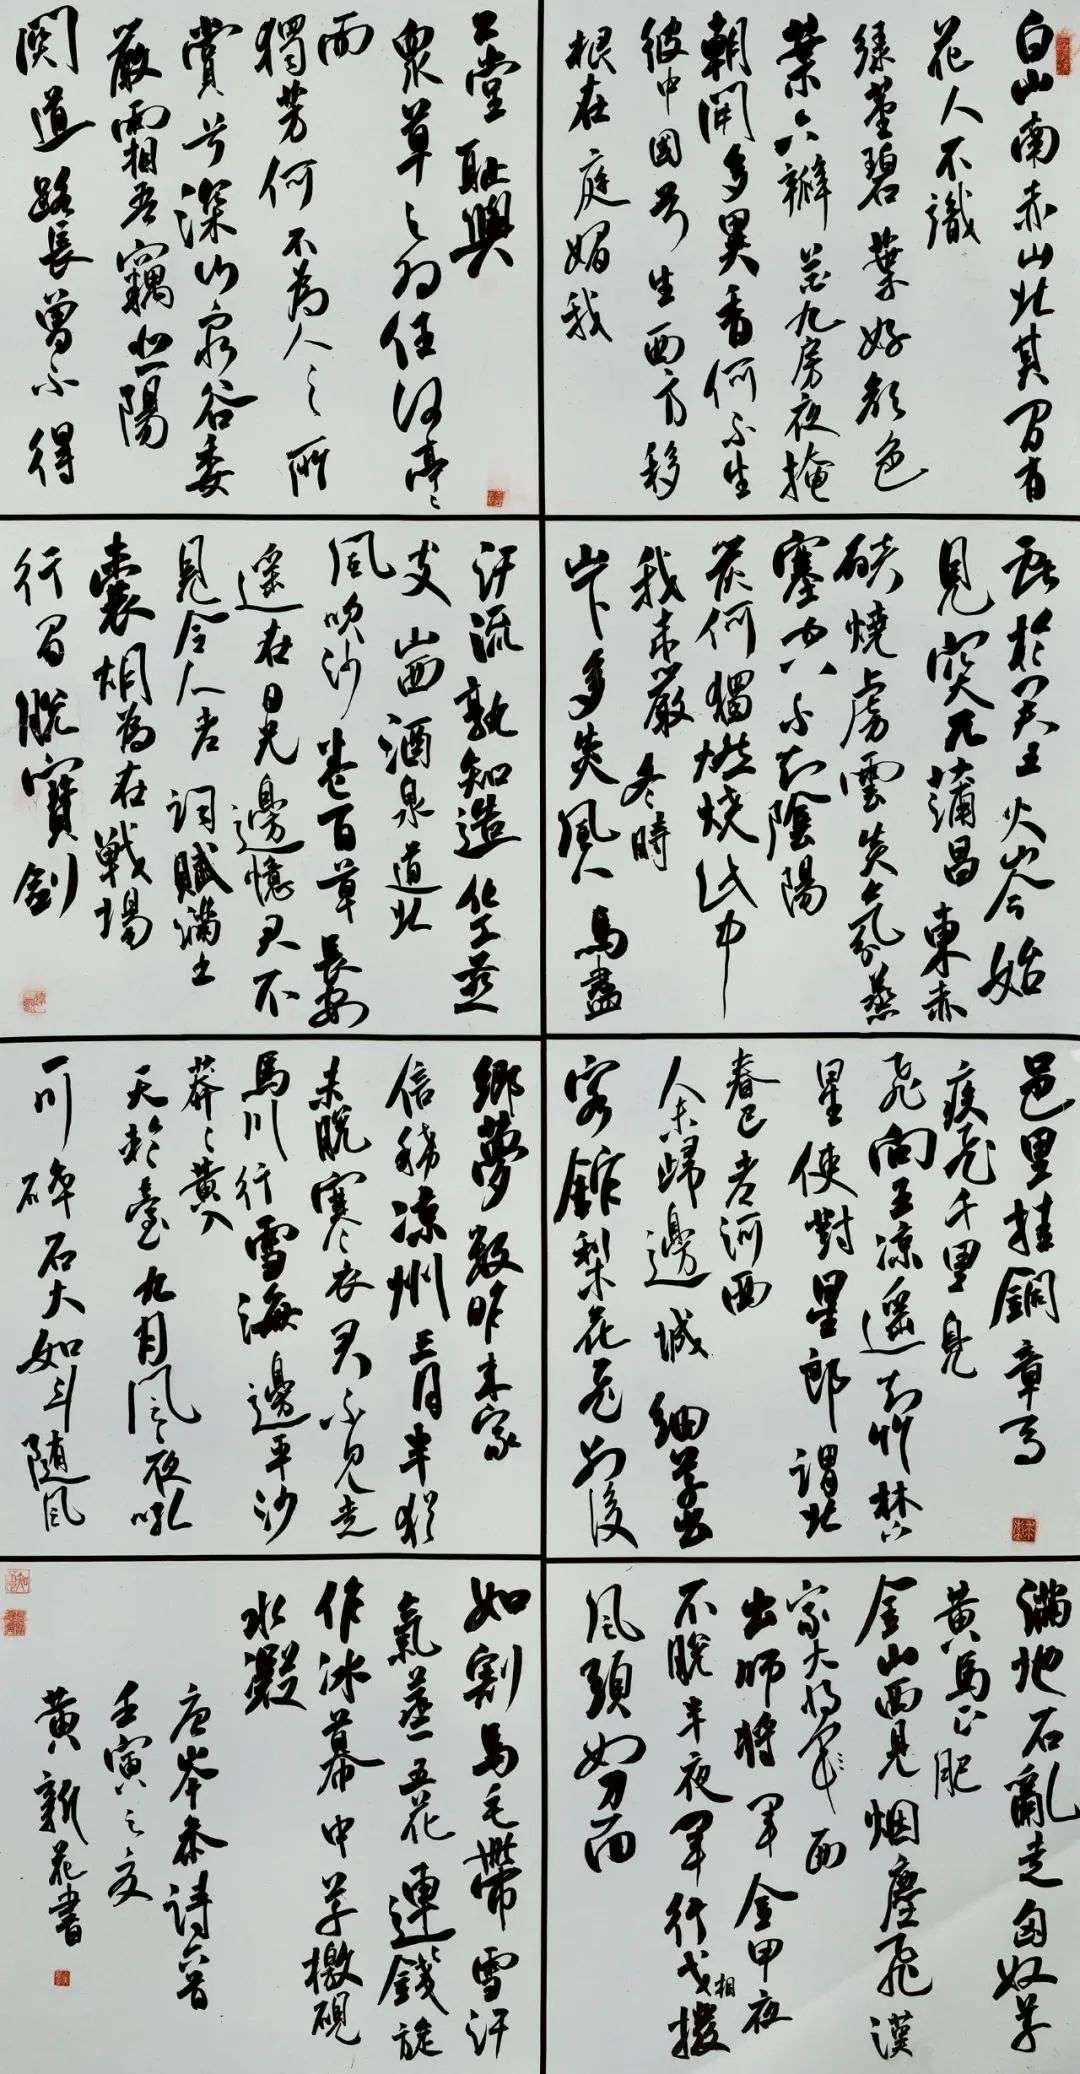 白山南赤山北其間有
花人不識
綠莖碧葉好顏色
葉六瓣花九房夜掩
朝開多異香何不生
彼中國兮生西方移
根在庭媚我
公堂耻與
眾草之為伍何亭亭
而
獨芳何不為人之所
賞兮深山窮谷委
嚴霜吾竊悲陽
關道路長曾不得
獻於君王火山今始
見突兀蒲昌東赤
燄燒虜雲炎氛蒸
塞空不知陰陽
炭何獨燃燒此中
我來嚴冬時
山下多炎風人馬盡
汗流孰知造化燕
支山西酒泉道北
風吹沙卷百草長安
遙在日光邊憶君不
見令人老詞賦滿書
囊胡為在戰場
行間脫寶劍
邑里挂銅章馬
疾飛千里鳧
飛向五涼遙知竹林下
星使對星郎謂北
春已老河西
人未歸邊城細草出
客館梨花飛別後
鄉夢數昨來家
信稀涼州三月半猶
未脫寒衣君不見走
馬川行雪海邊平沙
莽莽黃入
天輪臺九月風夜吼
一川碎石大如斗隨風
滿地石亂走匈奴草
黃馬正肥
金山西見烟塵飛漢
家大將軍西
出師將軍金甲夜
不脫半夜軍行戈相撥
風頭如刀面
如割馬毛帶雪汗
氣蒸五花連錢旋
作冰幕中草檄硯
水凝
唐岑參詩六首
壬寅之夏
黃新花書